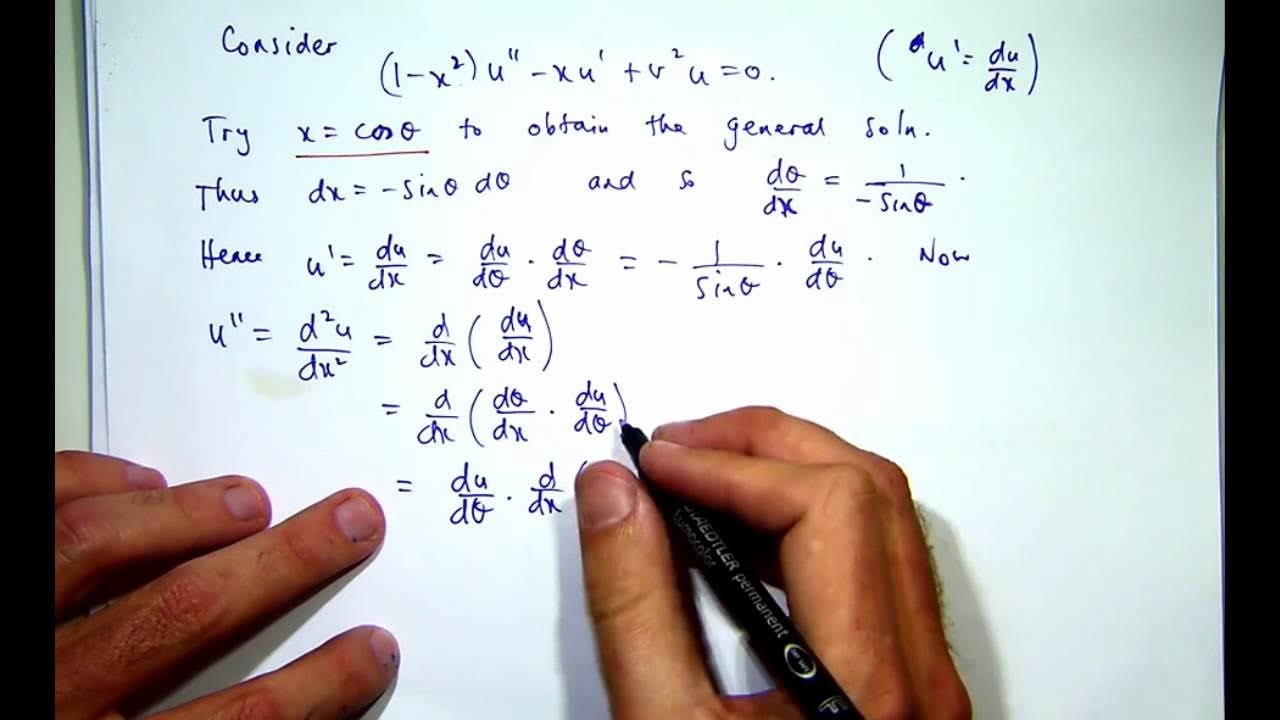 Consider
(1-x²)u'' - xu' + v²u = 0. (u' = du/dx)
Try x = cosθ to obtain the general soln.
Thus dx = -sinθ dθ and so dθ/dx = 1/-sinθ.
Hence u' = du/dx = du/dθ · dθ/dx = - 1/sinθ · du/dθ. Now
u'' = d²u/dx² = d/dx (du/dx)
= d/dx (dθ/dx · du/dθ)
= du/dθ · d/dx (
STAEDTLER permanent
Lumocolor
F